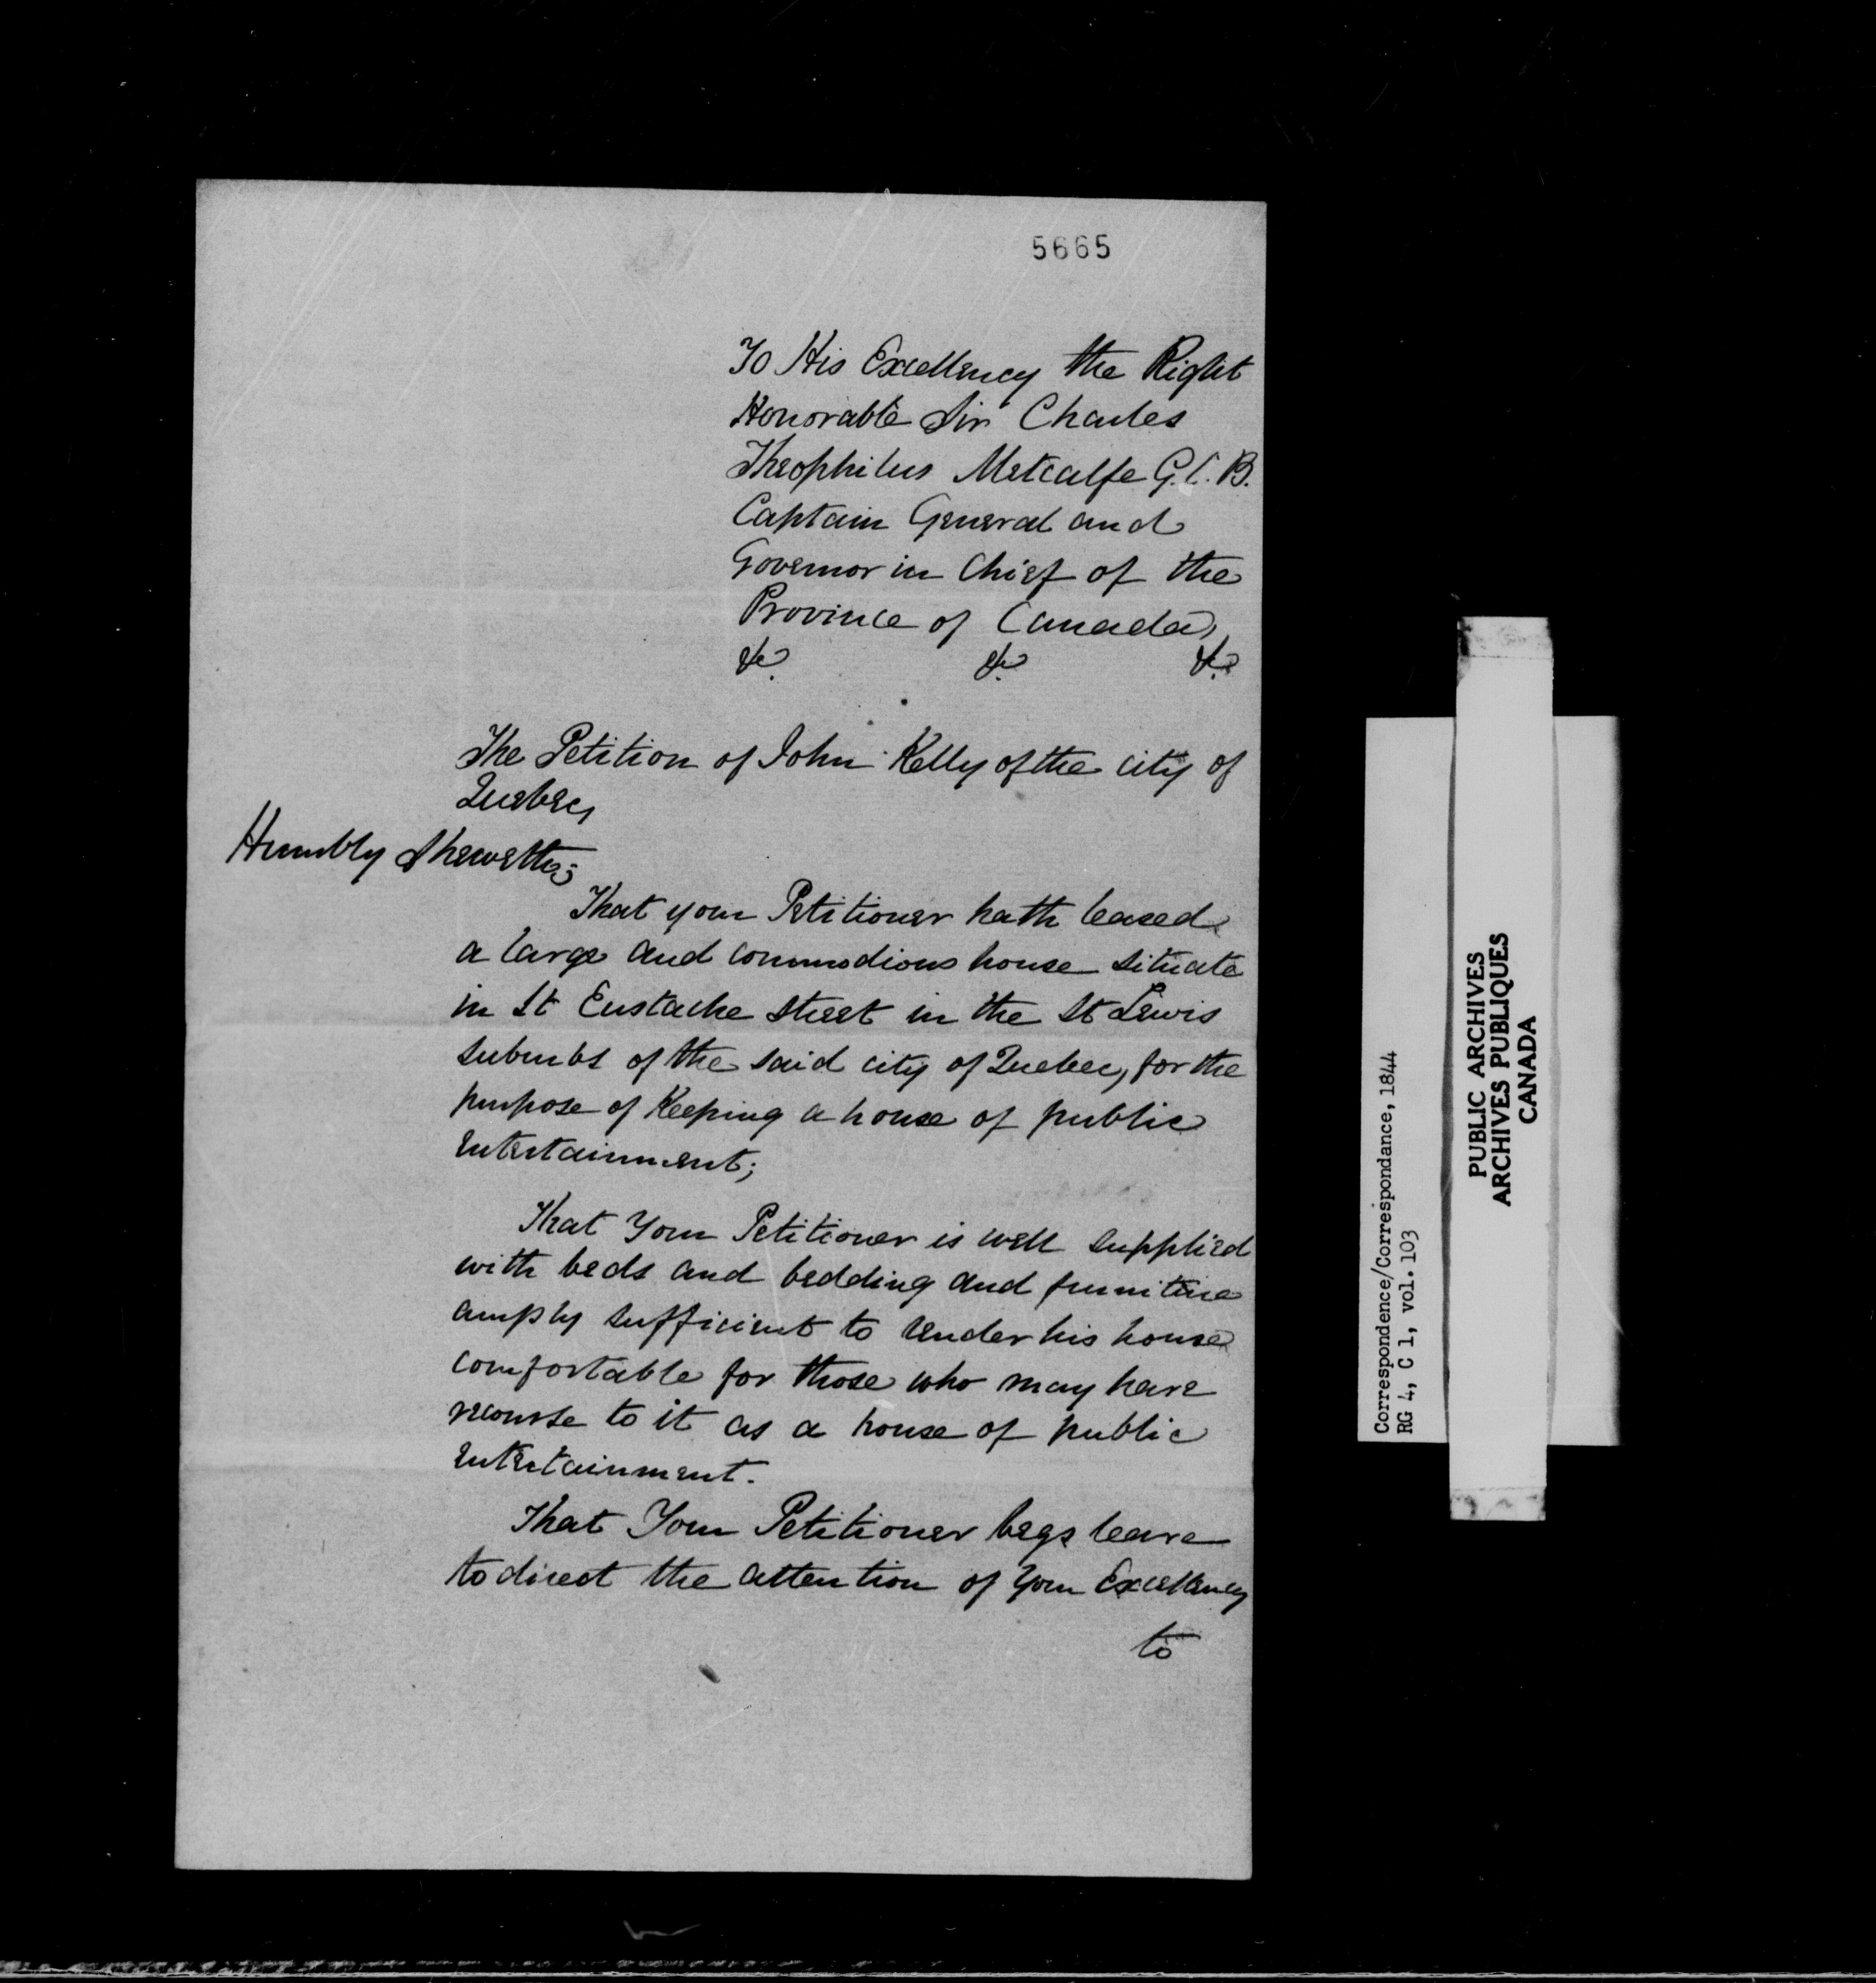 5665
To His Excellency the Right
Honorable Sir Charles
Theophilus Metcalfe G.C.B.
Captain General and
Governor in Chief of the
Province of Canada,
&c. &c. &c.
The Petition of John Kelly of the city of
Quebec,
Humbly Sheweth;
That your Petitioner hath leased
a large and commodious house situate
in St Eustache Street in the St Lewis
suburbs of the said city of Quebec, for the
purpose of Keeping a house of public
entertainment;
That Your Petitioner is well supplied
with beds and bedding and furniture
amply sufficient to render his house
comfortable for those who may have
recourse to it as a house of public
entertainment.
That Your Petitioner begs leave
to direct the attention of Your Excellency
to
Correspondence/Correspondance, 1844
RG 4, C 1, vol. 103
PUBLIC ARCHIVES
ARCHIVES PUBLIQUES
CANADA